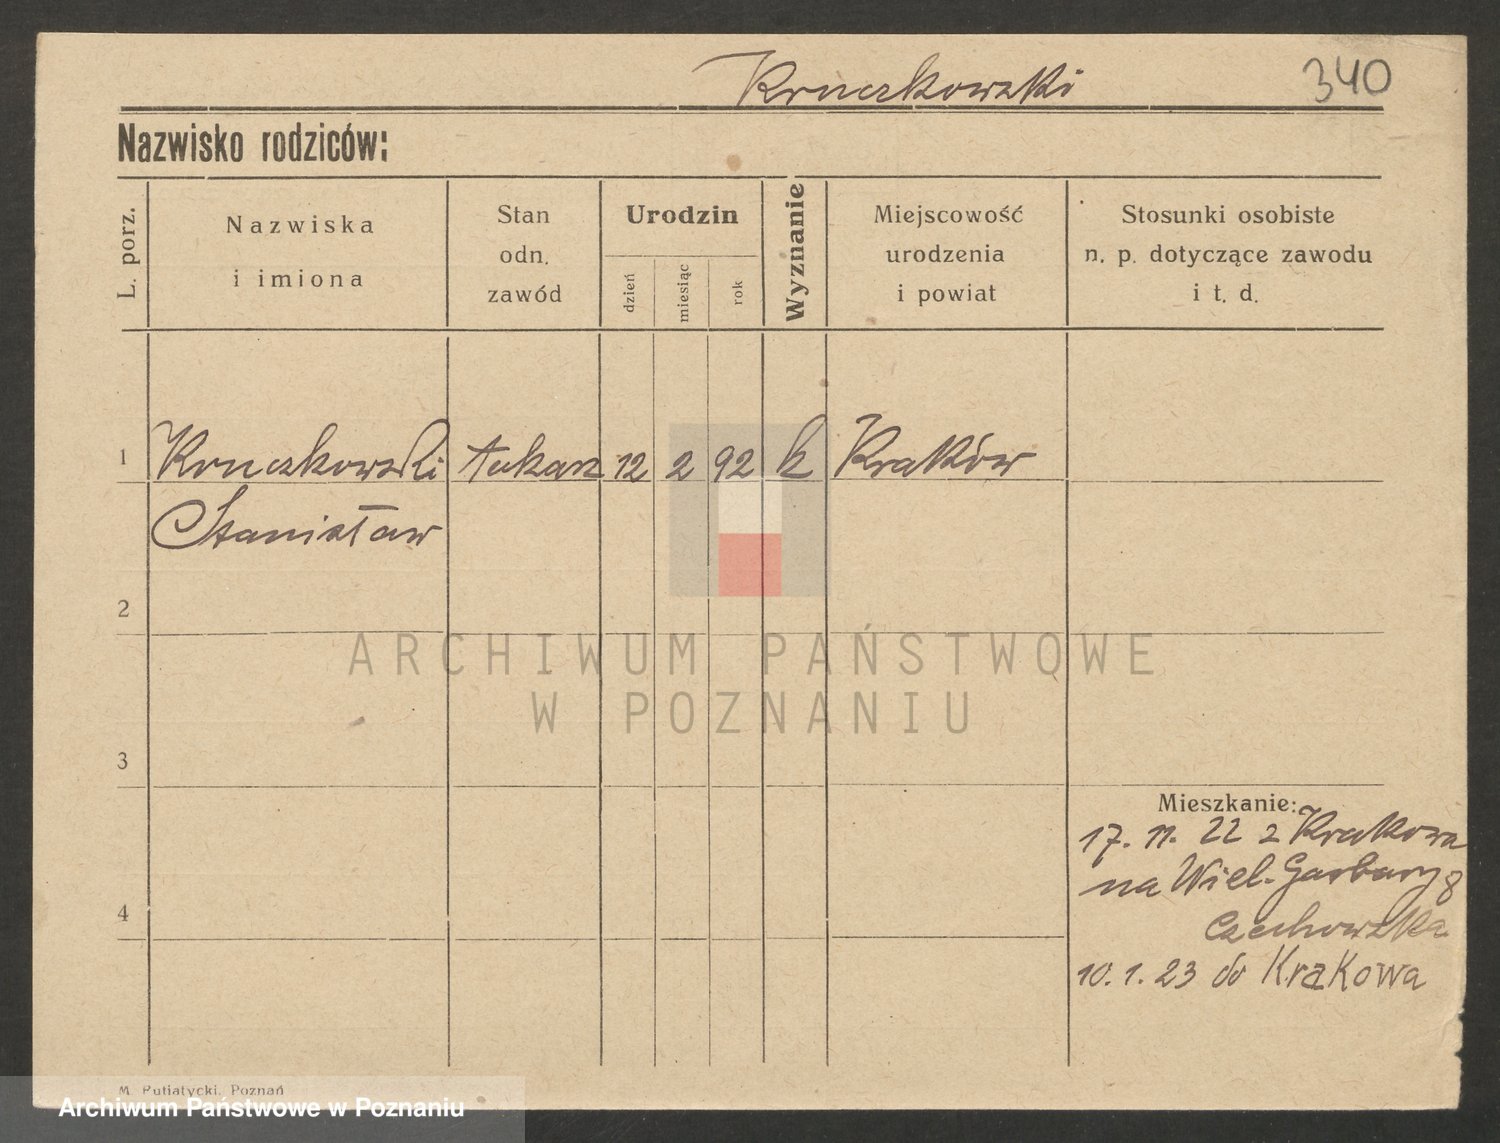 Kruczkowski
340
Nazwisko rodziców:
L. porz.
Nazwiska
i imiona
Stan
odn.
zawód
Urodzin
dzień
miesiąc
rok
Wyznanie
Miejscowość
urodzenia
i powiat
Stosunki osobiste
n. p. dotyczące zawodu
i t. d.
1 Kruczkowski 12 2 92 k Kraków
Stanisław
2
ARCHIWUM PAŃSTWOWE
W POZNANIU
3
Mieszkanie:
17. 11. 22 z Krakowa
na Wiel. Garbary 8
Czechowska
4
10. 1. 23 do Krakowa
M. Putiatycki, Poznań
Archiwum Państwowe w Poznaniu